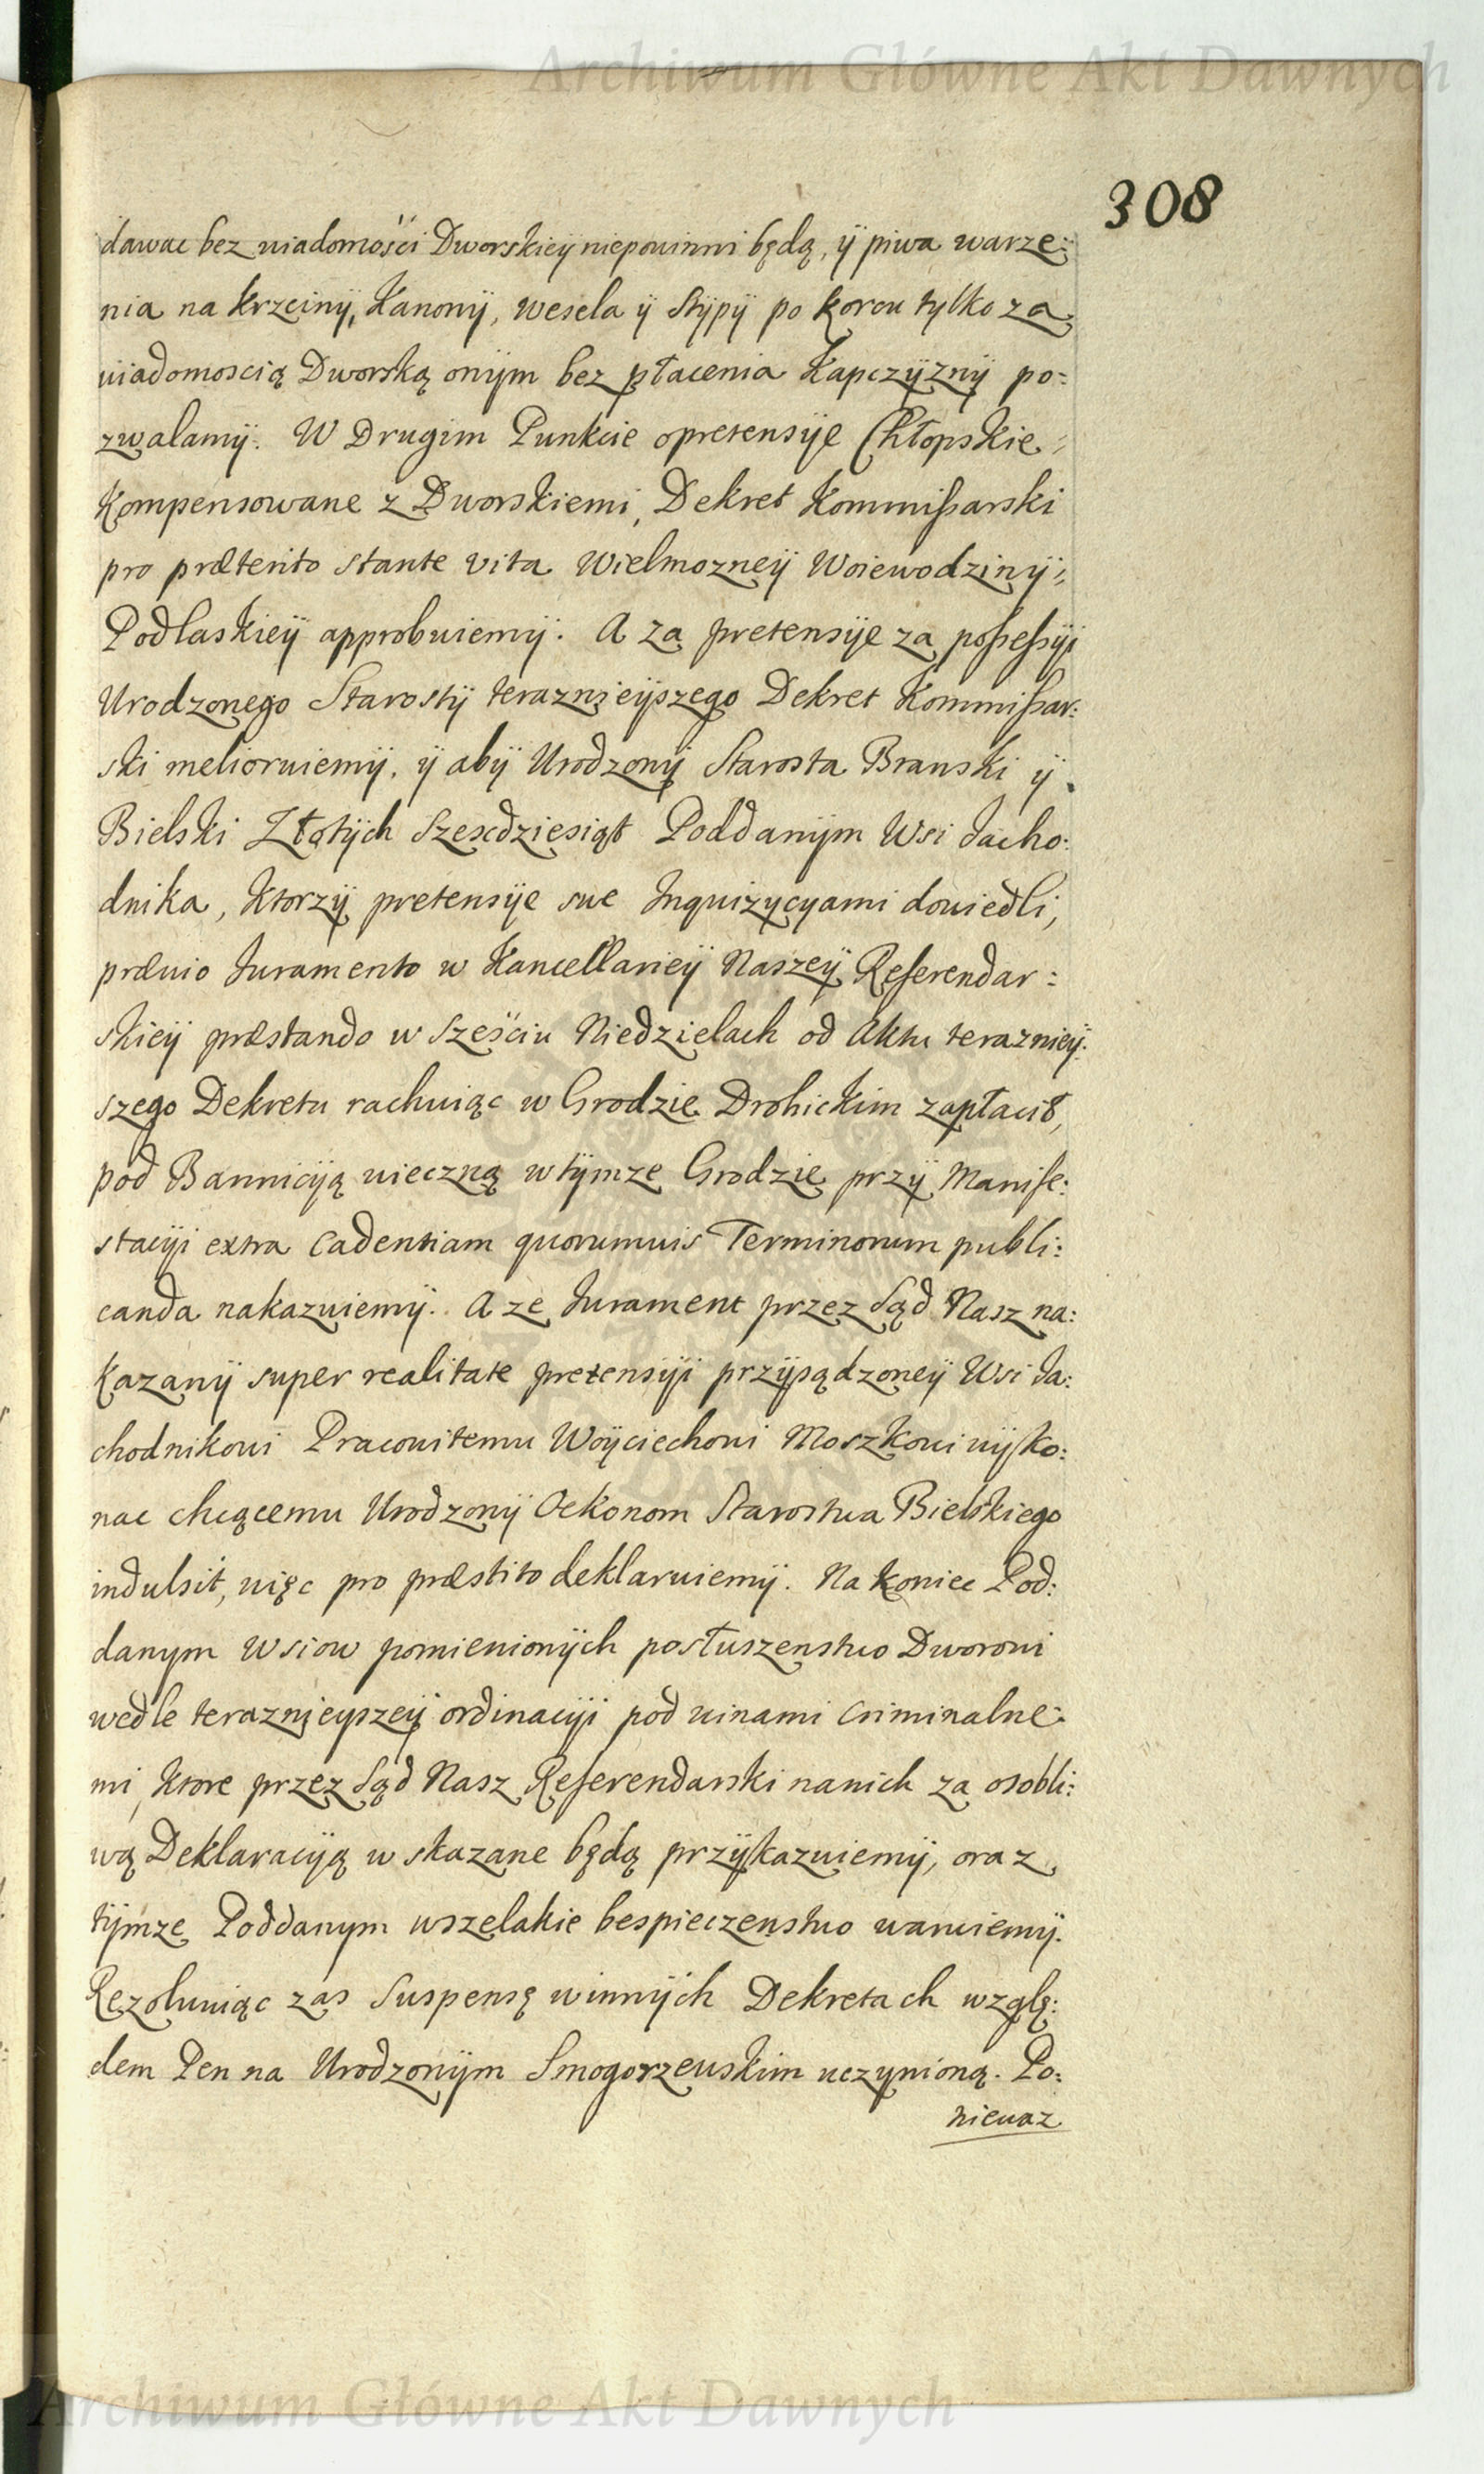 Archiwum Główne Akt Dawnych
308
dawac bez wiadomości Dworskieÿ niepowinni będą, ÿ piwa warze:
nia na krzcinÿ, Kanonÿ, wesela ÿ Stÿpÿ po korcu tylko za
wiadomoscią Dworską onÿm bez płacenia Kapczÿznÿ po:
zwalamÿ. W Drugim Punkcie o pretensÿe Chłopskie
Kompensowane z Dworskiemi, Dekret Kommißarski
pro præterito stante vita Wielmozneÿ Woiewodzinÿ
Podlaskieÿ approbuiemÿ. A za pretensÿe za poßeßÿi
Urodzonego Starostÿ teraznieÿszego Dekret Kommißar:
ski melioruiemÿ, ÿ abÿ Urodzonÿ Starosta Branski ÿ
Bielski Złotÿch Szescdziesiąt Poddanÿm Wsi Jacho:
dnika, Ktorzÿ pretensÿe swe Inquizycyami dowiedli,
prævio Juramento w Kancellarieÿ Naszeÿ Referendar:
skieÿ præstando w Sześciu Niedzielach od Aktu teraznieÿ:
szego Dekretu rachuiąc w Grodzie Drohickim zapłacił,
pod Bannicÿą wieczną w tÿmze Grodzie przÿ Manife:
stacÿi extra Cadentiam quorumvis Terminorum publi:
canda nakazuiemÿ. A ze Jurament przez Sąd Nasz na:
kazanÿ super realitate pretensÿi przÿsądzoneÿ Wsi Ja:
chodnikowi Pracowitemu Woÿciechowi Moszkowi wÿko:
nac chcącemu Urodzonÿ Oekonom Starostwa Bielskiego
indulsit, więc pro præstito deklaruiemÿ. Na koniec Pod:
danym Wsiow pomienionÿch posłuszenstwo Dworowi
wedle teraznieyszeÿ ordinacÿi pod winami Criminalne:
mi, Ktore przez Sąd Nasz Referendarski nanich za osobli:
wą Deklaracÿą wskazane będą przÿkazuiemÿ, oraz
tÿmze Poddanym wszelakie bespieczenstwo waruiemÿ.
Rezolwuiąc zas Suspensę winnÿch Dekretach wzglę:
dem Pen na Urodzonÿm Smogorzewskim uczynioną. Po:
niewaz
Archiwum Główne Akt Dawnych